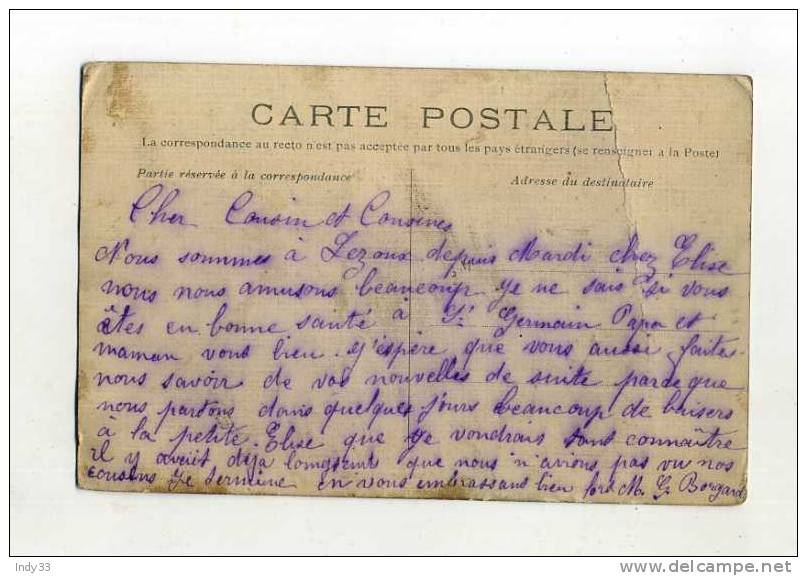 CARTE POSTALE
La correspondance au recto n'est pas acceptée par tous les pays étrangers (se renseigner a la Poste)
Partie réservée à la correspondance
Adresse du destinataire
Cher Cousin et Cousines
Nous sommes à Lezoux depuis Mardi chez Elise
nous nous amusons beaucoup je ne sais si vous
êtes en bonne santé à St Germain Papa et
maman vont bien. J'espère que vous aussi faites
nous savoir de vos nouvelles de suite parce que
nous partons dans quelques jours beaucoup de baisers
à la petite Elise que je voudrais tant connaître
il y avait déjà longtemps que nous n'avions pas vu nos
cousins Je termine en vous embrassant bien fort M. G. Borgard
Indy33
www.delcampe.net